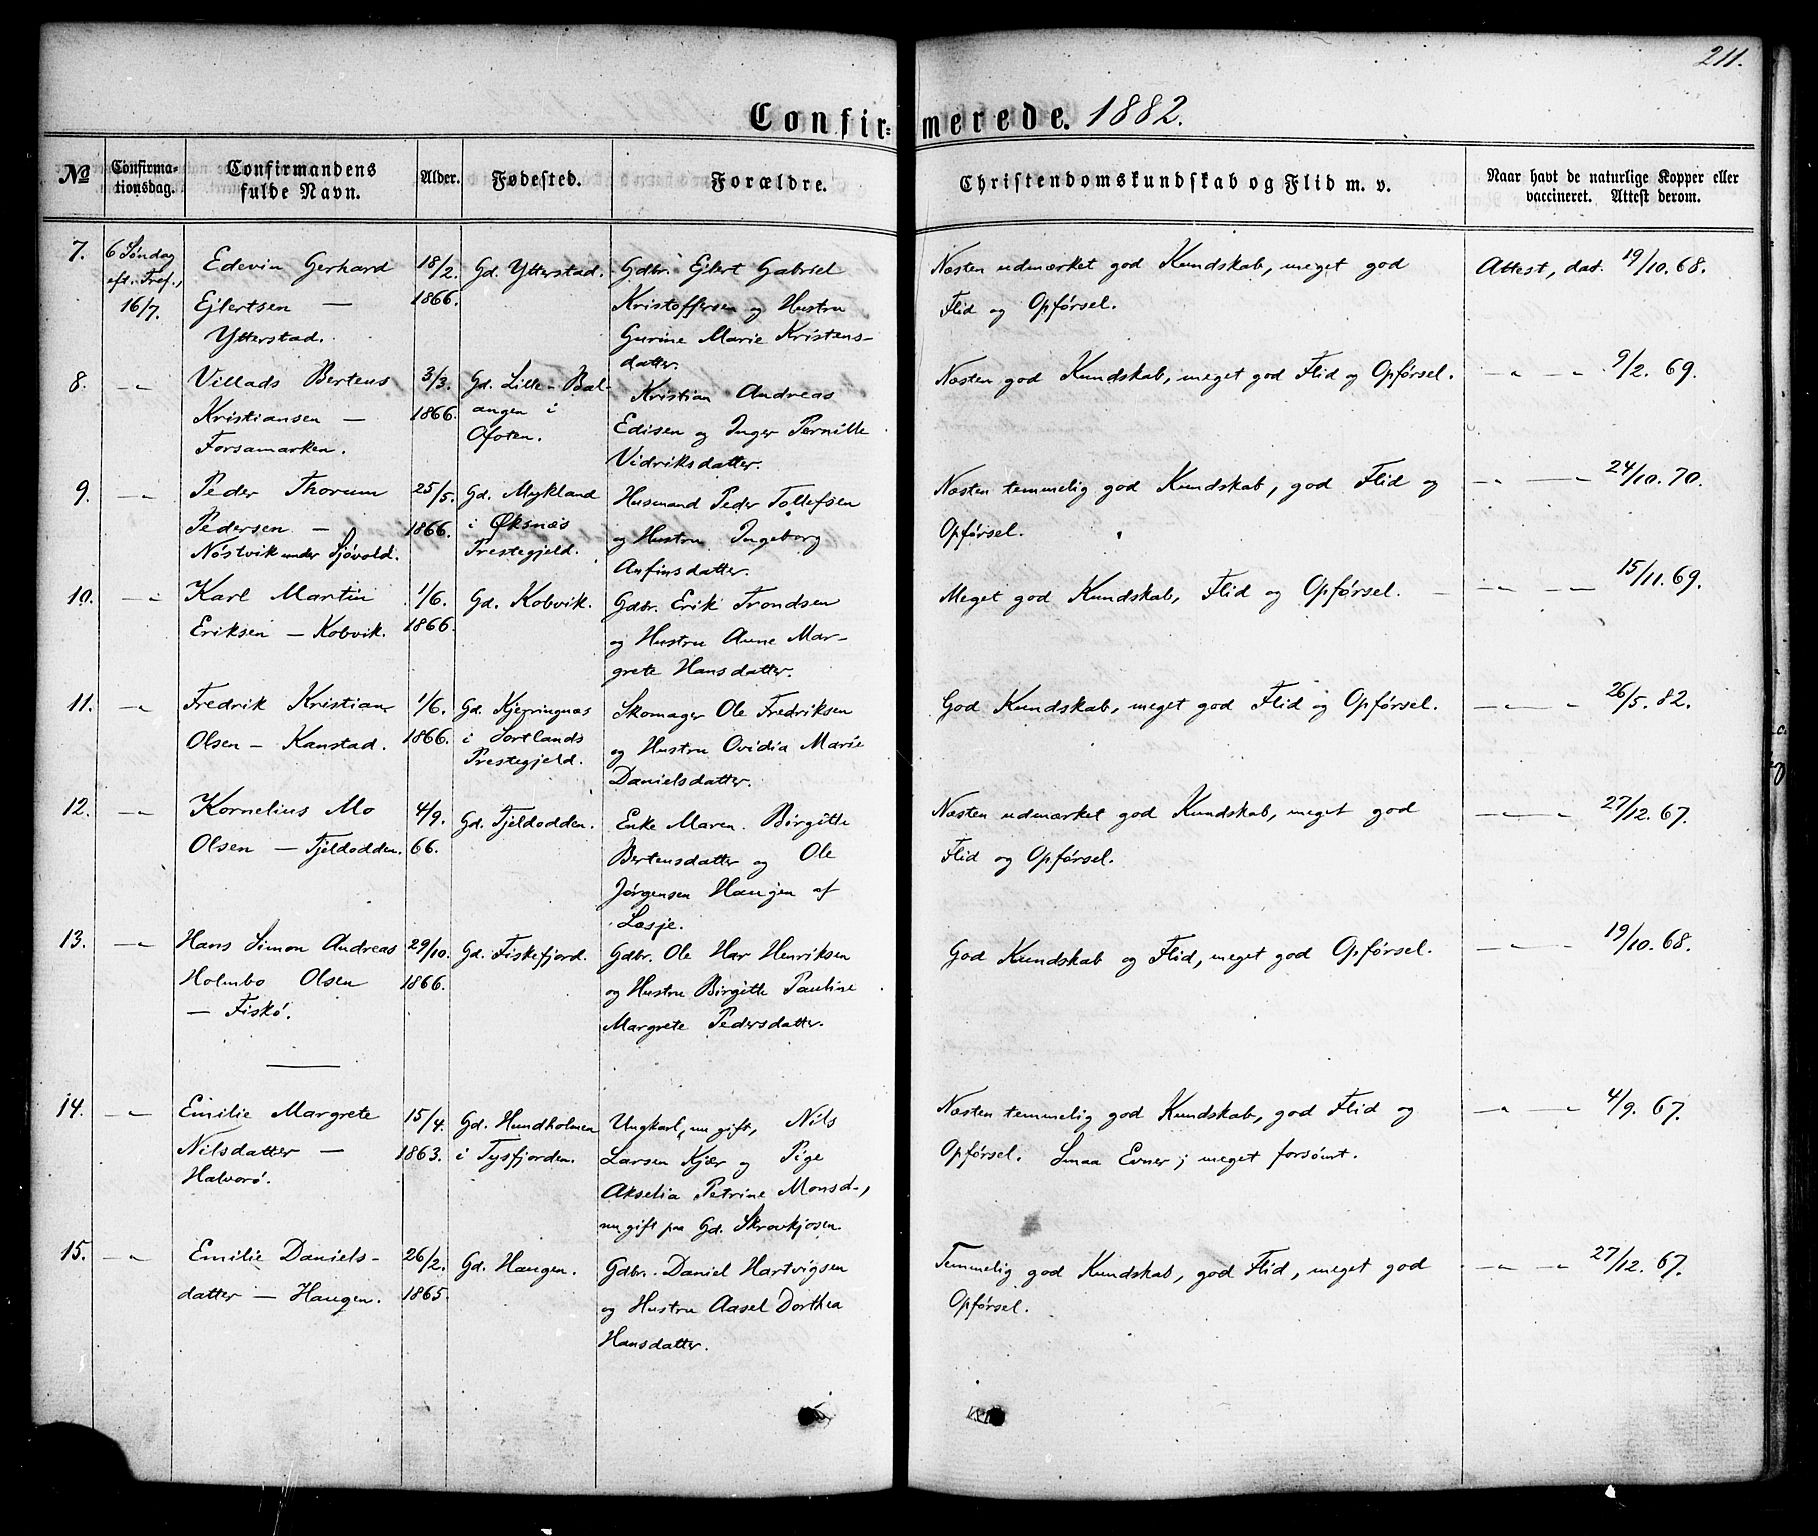 211.
Confir= merede. 1882.
No
Confirma-
tionsdag.
Confirmandens
fulde Navn.
Alder.
Fødested.
Forældre.
Christendomskundskab og Flid m. v.
Naar havt de naturlige Kopper eller
vaccineret. Attest derom.
7.
6 Søndag
eft. Tref.,
16/7.
Edevin Gerhard
Ejlertsen —
Ytterstad.
18/2.
1866.
Gd. Ytterstad.
Gdbr. Ejlert Gabriel
Kristoffersen og Hustru
Gurine Marie Kristens-
datter.
Næsten udmærket god Kundskab, meget god
Flid og Opførsel.
Attest, dat. 19/10. 68.
8.
— „
Villads Bertens
Kristiansen —
Forsamarken.
3/3.
1866.
Gd. Lille-Bal-
angen i
Ofoten.
Kristian Andreas
Edisen og Inger Pernille
Vidriksdatter.
Næsten god Kundskab, meget god Flid og Opførsel.
— „ — „ 9/2. 69.
9.
— „
Peder Thorum
Pedersen —
Nøstvik under Sjøvold.
25/5.
1866.
Gd. Mykland
i Øksnæs
Prestegjeld.
Husmand Peder Tollefsen
og Hustru Ingeborg
Anfinsdatter.
Næsten temmelig god Kundskab, god Flid og
Opførsel.
— „ — „ 24/10. 70.
10.
— „
Karl Martin
Eriksen — Kobvik.
1/6.
1866.
Gd. Kobvik.
Gdbr. Erik Trondsen
og Hustru Anne Mar-
grete Hansdatter.
Meget god Kundskab, Flid og Opførsel.
— „ — „ 15/11. 69.
11.
— „
Fredrik Kristian
Olsen — Kanstad.
1/6.
1866.
Gd. Kjerringnæs
i Sortlands
Prestegjeld.
Skomager Ole Fredriksen
og Hustru Ovidia Marie
Danielsdatter.
God Kundskab, meget god Flid og Opførsel.
— „ — „ 26/5. 82.
12.
— „
Kornelius Mo
Olsen — Fjeldodden.
4/9.
66.
Gd. Fjeldodden.
Enke Maren Birgitte
Bertensdatter og Ole
Jørgensen Haugen af
Lesje.
Næsten udmærket god Kundskab, meget god
Flid og Opførsel.
— „ — „ 27/12. 67.
13.
— „
Hans Simon Andreas
Holmbo Olsen
— Fiskø.
29/10.
1866.
Gd. Fiskefjord.
Gdbr. Ole Har Henriksen
og Hustru Birgitte Pauline
Margrete Pedersdatter.
God Kundskab og Flid, meget god Opførsel.
— „ — „ 19/10. 68.
14.
— „
Emilie Margrete
Nilsdatter —
Halvorø.
15/4.
1863.
Gd. Hundholmen
i Tysfjorden.
Ungkarl, nu gift, Nils
Larsen Kjær og Pige
Akselia Petrine Monsd-,
nu gift paa Gd. Skrovkjosen.
Næsten temmelig god Kundskab, god Flid og
Opførsel. Smaa Evner; meget forsømt.
— „ — „ 4/9. 67.
15.
— „
Emilie Daniels-
datter — Haugen.
26/2.
1865.
Gd. Haugen.
Gdbr. Daniel Hartvigsen
og Hustru Aasel Dorthea
Hansdatter.
Temmelig god Kundskab, god Flid, meget god
Opførsel.
— „ — „ 27/12. 67.